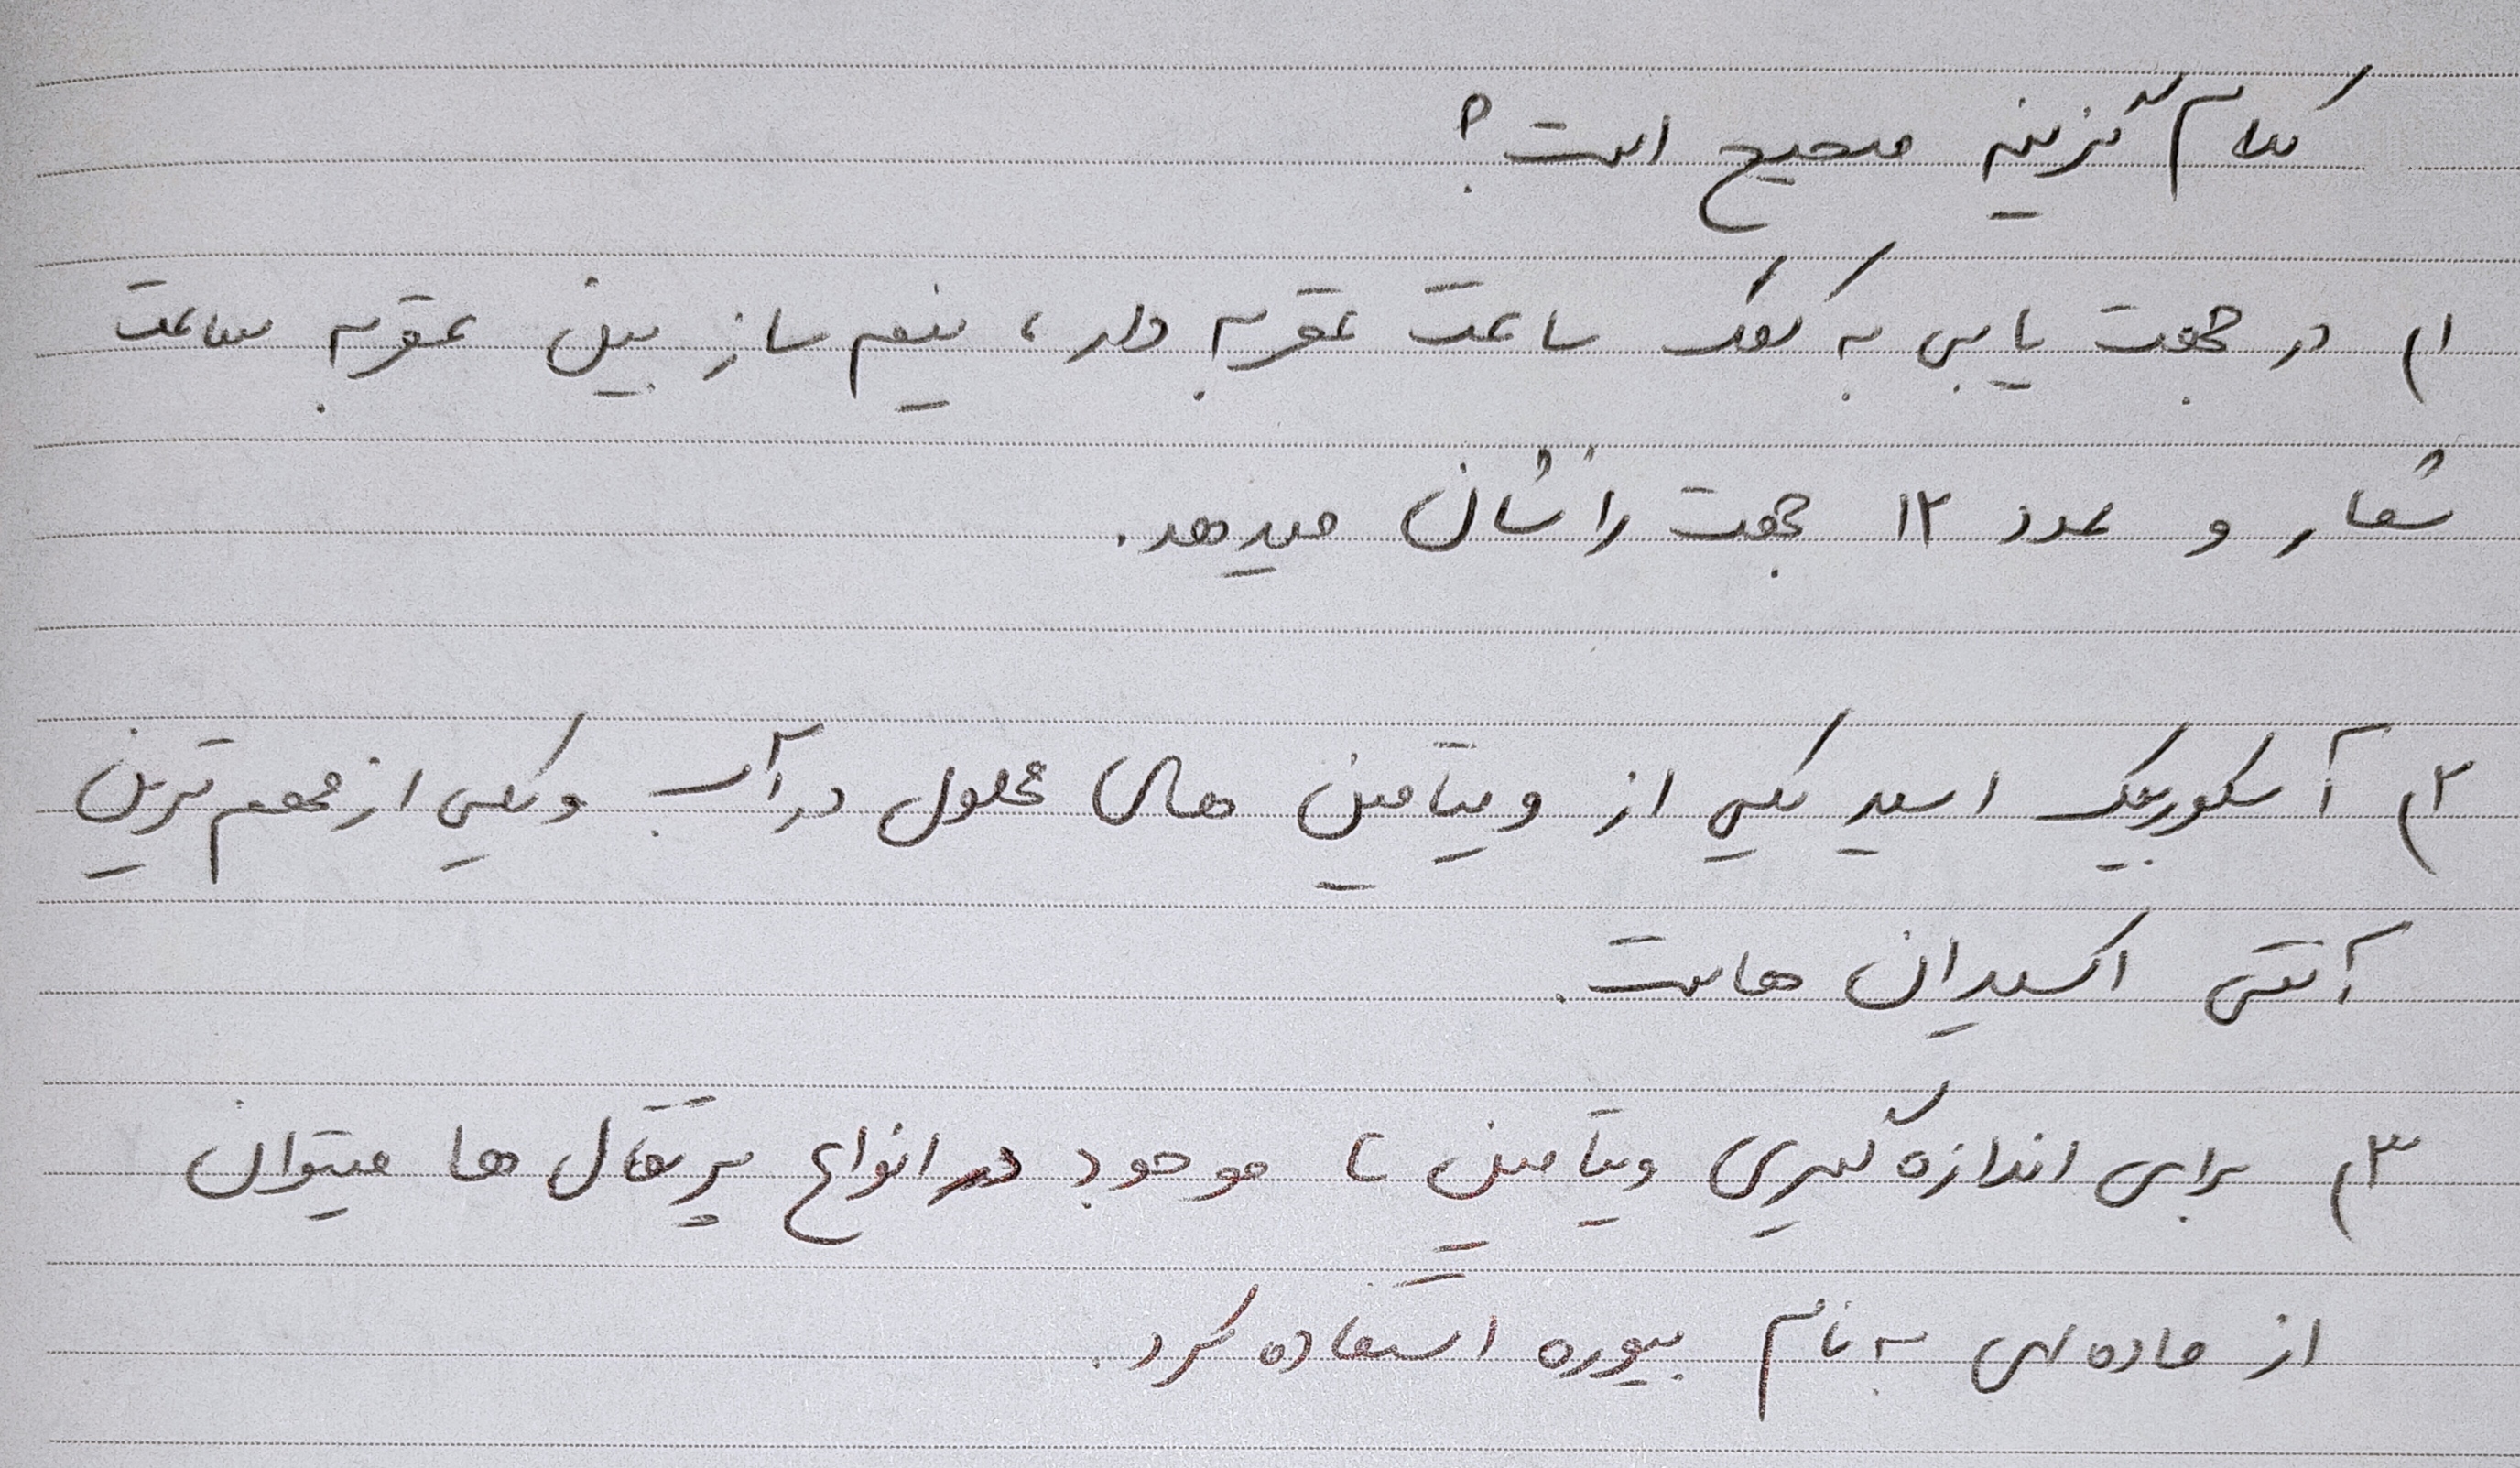 کدام گزینه صحیح است؟
۱) در جهت یابی به کمک ساعت عقربه دار، نیم ساز بین عقربه ساعت
شمار و عدد ۱۲ جهت را نشان میدهد.
۲) آسکوربیک اسید یکی از ویتامین های محلول در آب و یکی از مهم ترین
آنتی اکسیدان هاست.
۳) برای اندازه گیری ویتامین ث موجود در انواع پرتقال ها میتوان
از ماده ای به نام بیوره استفاده کرد.